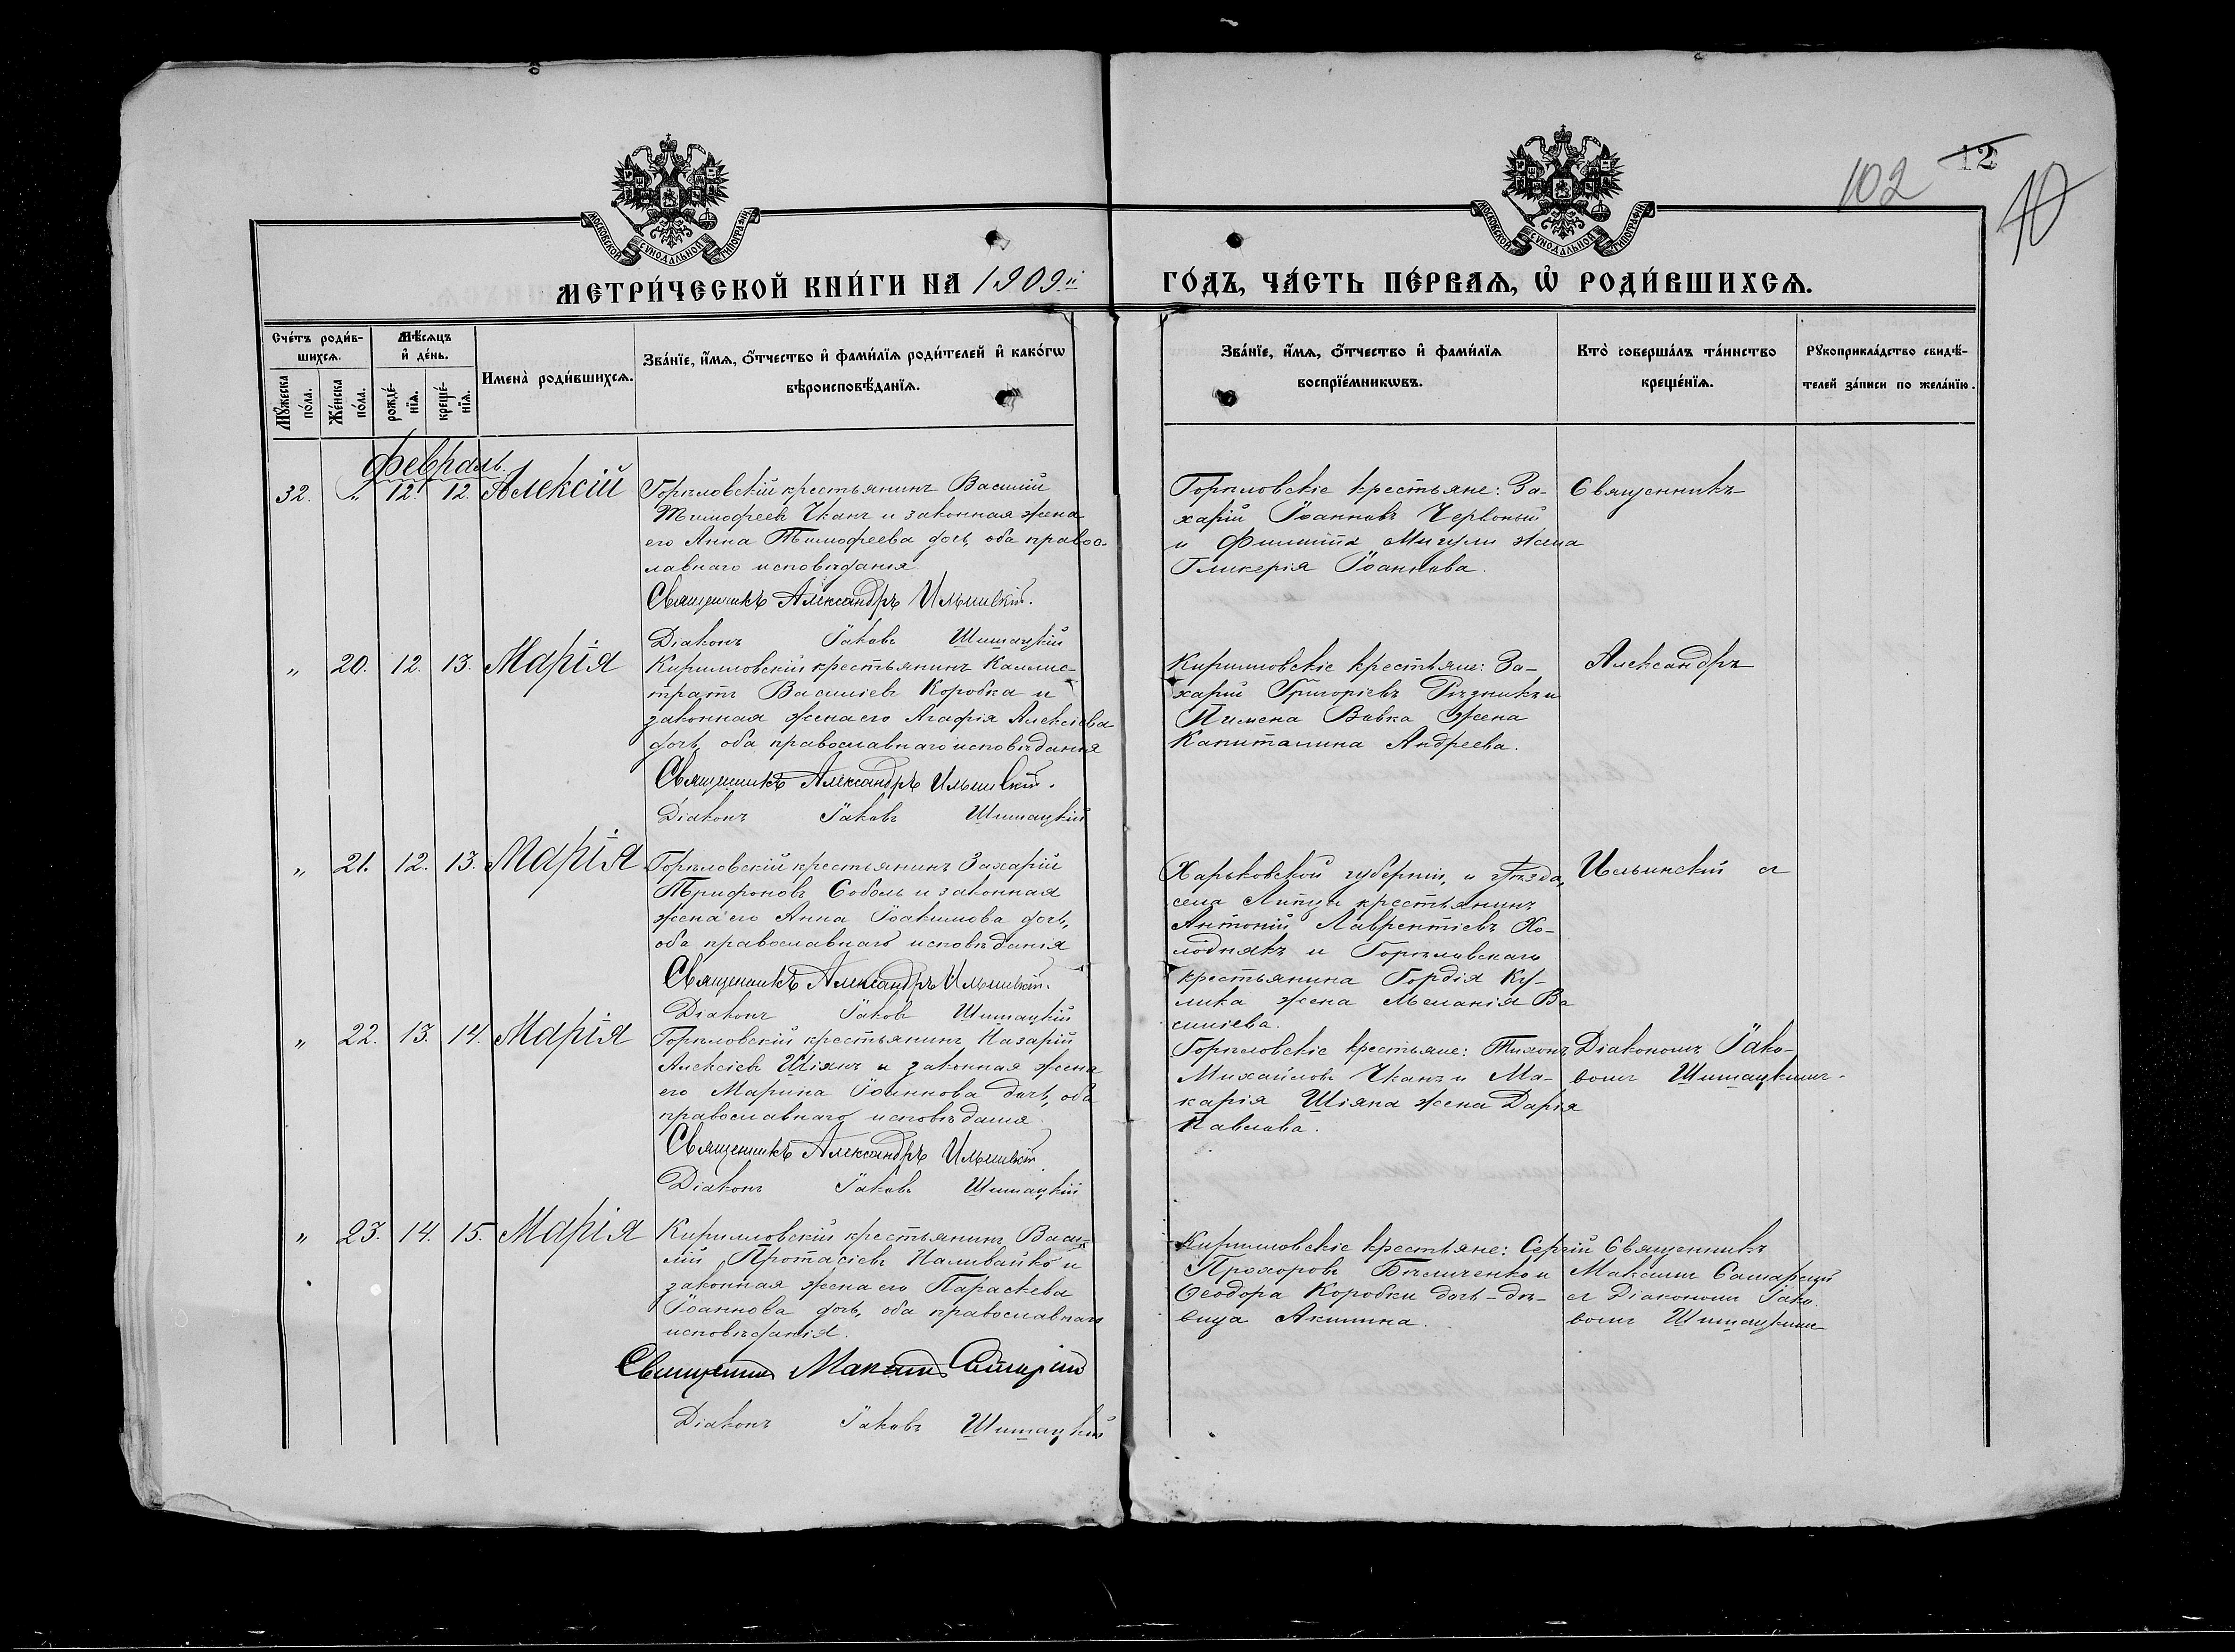 102 12
10
МОСКОВСКОЙ СѴНОДАЛЬНОЙ ТИПОГРАФІИ
МОСКОВСКОЙ СѴНОДАЛЬНОЙ ТИПОГРАФІИ
МЕТРИ́ЧЕСКОЙ КНИ́ГИ НА 1909й ГО́ДЪ, ЧА́СТЬ ПЕ́РВАѦ, Ѽ РОДИ́ВШИХСѦ.
Сче́тъ роди́в-
шихсѧ.
Мѣ́сѧцъ
и҆ де́нь.
Мꙋ́жеска
по́ла.
Же́нска
по́ла.
рожде́-
нїѧ.
креще́-
нїѧ.
Имена̀ роди́вшихсѧ.
Зва́нїе, и҆́мѧ, ѻ҆́тчество и҆ фами́лїѧ роди́телей и҆ како́гѡ
вѣроисповѣ́данїѧ.
Зва́нїе, и҆́мѧ, ѻ҆́тчество и҆ фами́лїѧ
воспрїе́мникѡвъ.
Кто̀ соверша́лъ та́инство
креще́нїѧ.
Рꙋкоприкла́дство свидѣ́-
телей за́писи по жела́нїю.
Февраль.
32. " 12. 12. Алексій
Горѣловскій крестьянинъ Василій
Тимофеевъ Чканъ и законная жена
его Анна Тимофеева дочь, оба правос-
лавнаго исповѣданія
Священникъ Александръ Ильинскій.
Діаконъ Іаковъ Шишацкій
Горѣловскіе крестьяне: За-
харій Іоанновъ Червоный
и Филиппа Мигули жена
Гликерія Іоаннова.
Священникъ
" 20. 12. 13. Марія
Кирилловскій крестьянинъ Каллис-
тратъ Василіевъ Коробка и
законная жена его Агафія Алексіева
дочь, оба православнаго исповѣданія
Священникъ Александръ Ильинскій.
Діаконъ Іаковъ Шишацкій
Кирилловскіе крестьяне: За-
харій Григоріевъ Рѣзникъ и
Пимена Вовка жена
Капиталина Андреева.
Александръ
" 21. 12. 13. Марія
Горѣловскій крестьянинъ Захарій
Трифоновъ Соболь и законная
жена его Анна Іоакимова дочь,
оба православнаго исповѣданія
Священникъ Александръ Ильинскій.
Діаконъ Іаковъ Шишацкій
Харьковской губерніи, и уѣзда,
села Липцы крестьянинъ
Антоній Лаврентіевъ Хо-
лоднякъ и Горѣловскаго
крестьянина Гордія Ку-
лика жена Меланія Ва
силіева.
Ильинскій съ
" 22. 13. 14. Марія
Горѣловскій крестьянинъ Назарій
Алексіевъ Шіянъ и законная жена
его Марина Іоаннова дочь, оба
православнаго исповѣданія
Священникъ Александръ Ильинскій
Діаконъ Іаковъ Шишацкій
Горѣловскіе крестьяне: Тихонъ
Михайловъ Чканъ и Ма-
карія Шіяна жена Дарія
Павлова.
Діакономъ Іако-
вомъ Шишацкимъ.
" 23. 14. 15. Марія
Кирилловскій крестьянинъ Васи-
лій Протасіевъ Наливайко и
законная жена его Параскева
Іоаннова дочь, оба православнаго
исповѣданія.
Священникъ Максимъ
Діаконъ Іаковъ Шишацкій
Кирилловскіе крестьяне: Сергій
Прохоровъ Бѣличенко и
Ѳеодора Коробки дочь-дѣ-
вица Акилина.
Священникъ
Максимъ
съ Діакономъ Іако-
вомъ Шишацкимъ